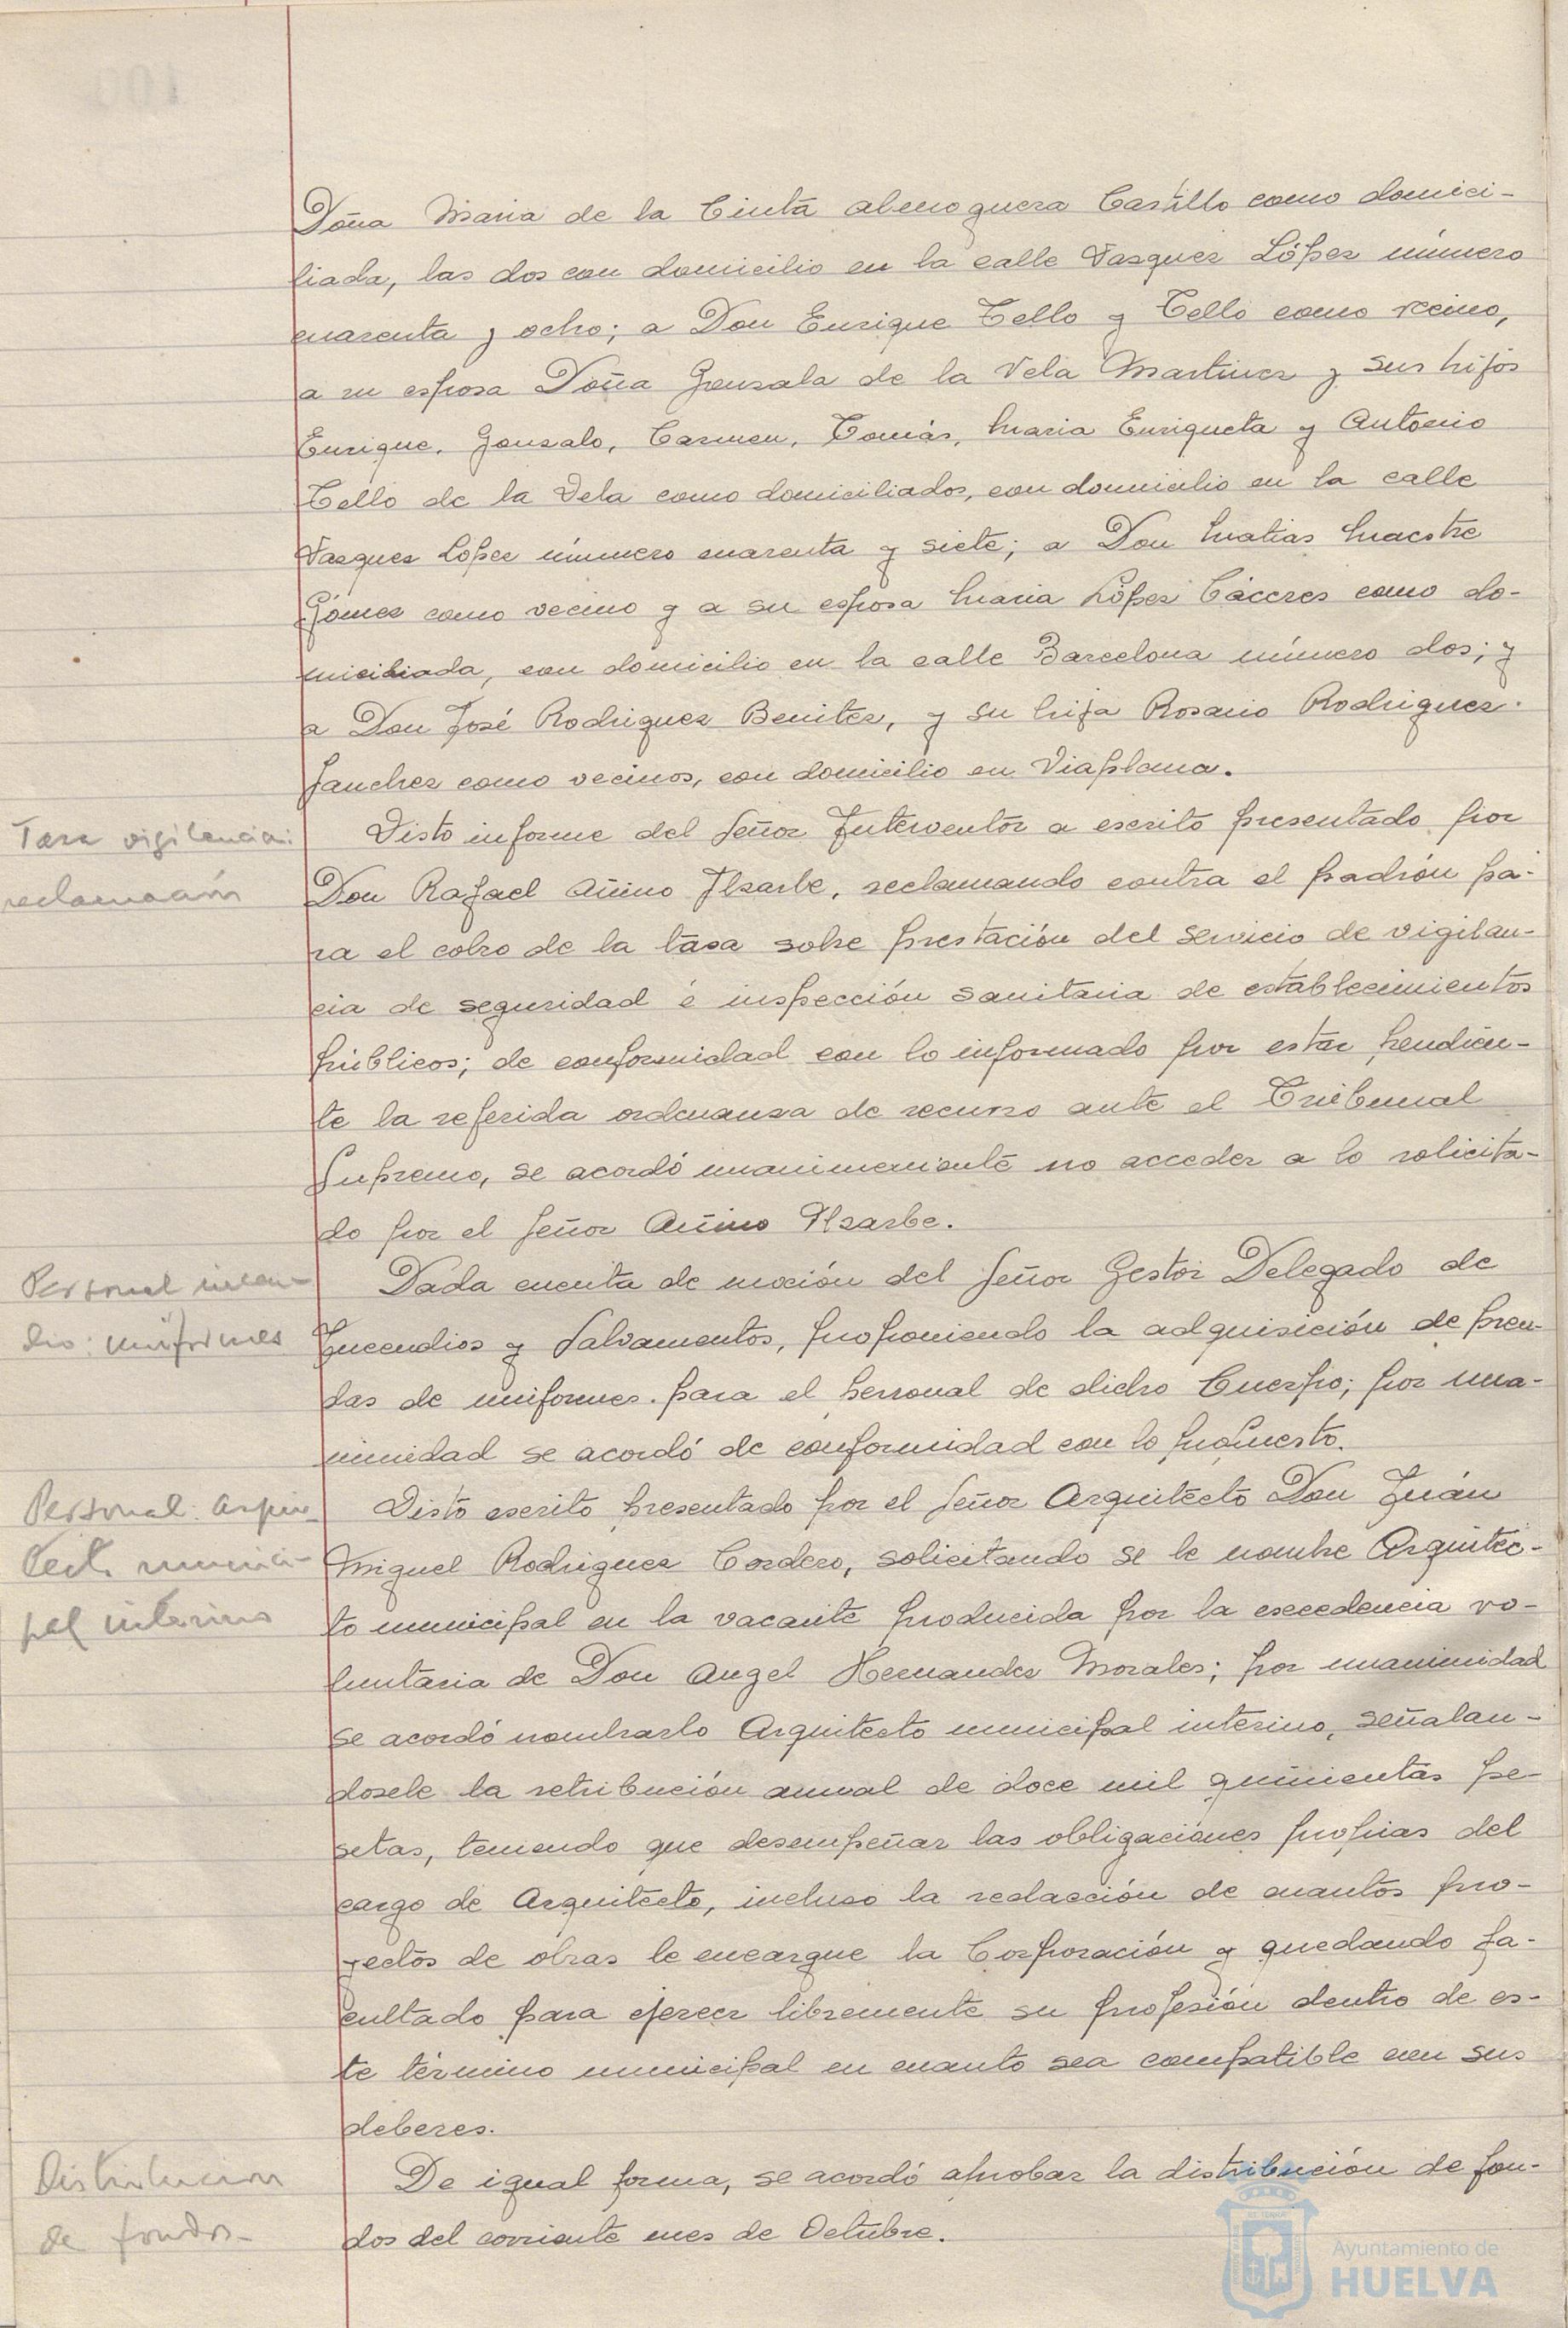 Doña Maria de la Cinta Almoguera Castillo como domici-
liada, las dos con domicilio en la calle Vasquez López número
cuarenta y ocho; a Don Enrique Tello y Tello como vecino,
a su esposa Doña Gonzala de la Vela Martinez y sus hijos
Enrique, Gonzalo, Carmen, Tomás, Maria Enriqueta y Antonio
Tello de la Vela como domiciliados, con domicilio en la calle
Vasquez López número cuarenta y siete; a Don Matias Maestre
Gómez como vecino y a su esposa Maria López Cáceres como do-
miciliada, con domicilio en la calle Barcelona número dos; y
a Don José Rodriguez Benitez, y su hija Rosario Rodriguez
Sanchez como vecinos, con domicilio en Viaplana.
Tasa vigilencia:
reclamación
Visto informe del Señor Interventor a escrito presentado por
Don Rafael Añino Ilzarbe, reclamando contra el padrón pa-
ra el cobro de la tasa sobre prestación del servicio de vigilan-
cia de seguridad é inspección sanitaria de establecimientos
públicos; de conformidad con lo informado por estar pendien-
te la referida ordenanza de recurso ante el Tribunal
Supremo, se acordó unanimemente no acceder a lo solicita-
do por el Señor Añino Ilzarbe.
Personal incen-
dio: uniformes
Dada cuenta de moción del Señor Gestor Delegado de
Incendios y Salvamentos, proponiendo la adquisición de pren-
das de uniformes para el personal de dicho Cuerpo; por una-
nimidad se acordó de conformidad con lo propuesto.
Personal: arqui-
tecto munici-
pal interino
Visto escrito presentado por el Señor Arquitecto Don Juán
Miguel Rodriguez Cordero, solicitando se le nombre Arquitec-
to municipal en la vacante producida por la excedencia vo-
luntaria de Don Angel Hernandez Morales; por unanimidad
se acordó nombrarlo Arquitecto municipal interino, señalan-
dosele la retribución anual de doce mil quinientas pe-
setas, teniendo que desempeñar las obligaciones propias del
cargo de Arquitecto, incluso la redacción de cuantos pro-
yectos de obras le encargue la Corporación y quedando fa-
cultado para ejercer libremente su profesión dentro de es-
te término municipal en cuanto sea compatible con sus
deberes.
Distribucion
de fondos-
De igual forma, se acordó aprobar la distribución de fon-
dos del corriente mes de Octubre.
Ayuntamiento de
HUELVA